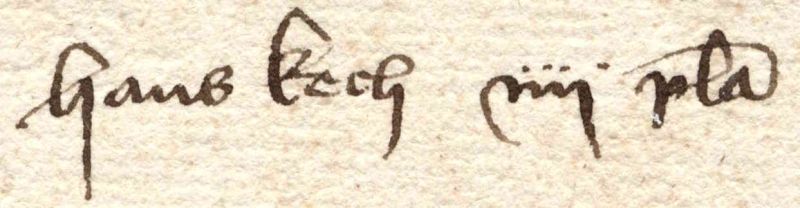 hans kech iiij pla